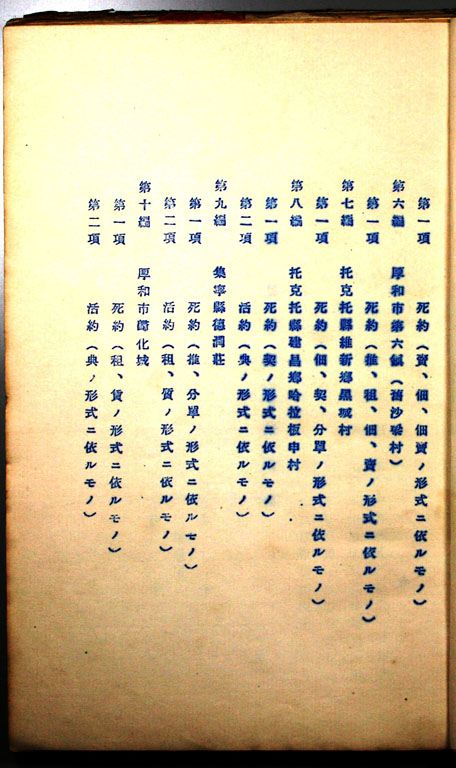 第一項 死約(賣、佃、佃賣ノ形式ニ依ルモノ)
第六編 厚和市第六鎮(沙梁村)
第一項 死約(推、租、佃、賣ノ形式ニ依ルモノ)
第七編 托克托縣維新鄉黑城村
第一項 死約(佃、契、分單ノ形式ニ依ルモノ)
第八編 托克托縣建昌鄉哈拉板申村
第一項 死約(契ノ形式ニ依ルモノ)
第二項 活約(典ノ形式ニ依ルモノ)
第九編 集寧縣德潤莊
第一項 死約(推、分單ノ形式ニ依ルモノ)
第二項 活約(租、質ノ形式ニ依ルモノ)
第十編 厚和市歸化城
第一項 死約(租、賃ノ形式ニ依ルモノ)
第二項 活約(典ノ形式ニ依ルモノ)